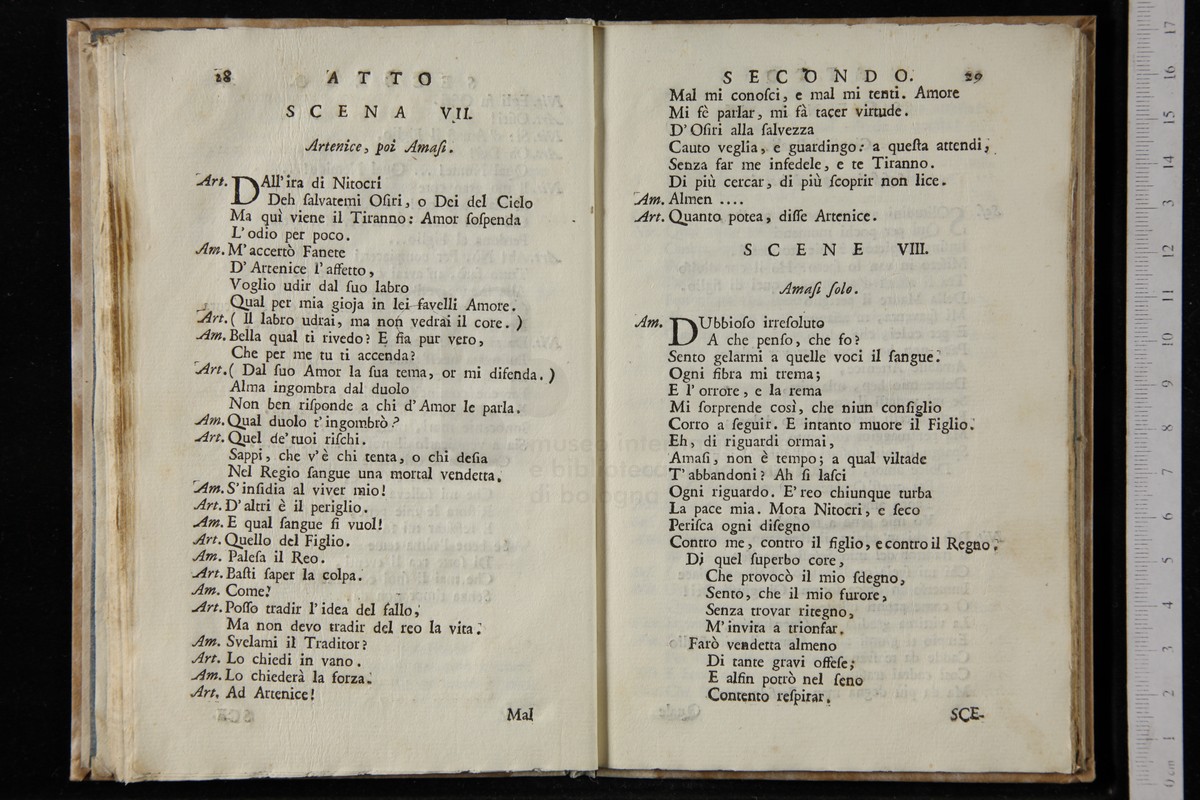 28 ATTO
SCENA VII.
Artenice, poi Amaſi.
Art. DAll'ira di Nitocri
Deh ſalvatemi Oſiri, o Dei del Cielo
Ma quì viene il Tiranno: Amor ſoſpenda
L'odio per poco.
Am. M'accertò Fanete
D'Artenice l'affetto,
Voglio udir dal ſuo labro
Qual per mia gioja in lei favelli Amore.
Art. ( Il labro udrai, ma non vedrai il core. )
Am. Bella qual ti rivedo? E fia pur vero,
Che per me tu ti accenda?
Art. ( Dal ſuo Amor la ſua tema, or mi difenda. )
Alma ingombra dal duolo
Non ben riſponde a chi d'Amor le parla.
Am. Qual duolo t'ingombrò?
Art. Quel de'tuoi riſchi.
Sappi, che v'è chi tenta, o chi deſia
Nel Regio ſangue una mortal vendetta.
Am. S'inſidia al viver mio!
Art. D'altri è il periglio.
Am. E qual ſangue ſi vuol!
Art. Quello del Figlio.
Am. Paleſa il Reo.
Art. Baſti ſaper la colpa.
Am. Come?
Art. Poſſo tradir l'idea del fallo,
Ma non devo tradir del reo la vita.
Am. Svelami il Traditor?
Art. Lo chiedi in vano.
Am. Lo chiederà la forza.
Art. Ad Artenice!
Mal
SECONDO. 29
Mal mi conoſci, e mal mi tenti. Amore
Mi fè parlar, mi fà tacer virtude.
D'Oſiri alla ſalvezza
Cauto veglia, e guardingo: a queſta attendi,
Senza far me infedele, e te Tiranno.
Di più cercar, di più ſcoprir non lice.
Am. Almen ....
Art. Quanto potea, diſſe Artenice.
SCENE VIII.
Amaſi ſolo.
Am. DUbbioſo irreſoluto
A che penſo, che fo?
Sento gelarmi a quelle voci il ſangue.
Ogni fibra mi trema;
E l'orrore, e la tema
Mi ſorprende così, che niun conſiglio
Corro a ſeguir. E intanto muore il Figlio.
Eh, di riguardi ormai,
Amaſi, non è tempo; a qual viltade
T'abbandoni? Ah ſi laſci
Ogni riguardo. E'reo chiunque turba
La pace mia. Mora Nitocri, e ſeco
Periſca ogni diſegno
Contro me, contro il figlio, e contro il Regno.
Di quel ſuperbo core,
Che provocò il mio ſdegno,
Sento, che il mio furore,
Senza trovar ritegno,
M'invita a trionfar.
Farò vendetta almeno
Di tante gravi offeſe;
E alfin potrò nel ſeno
Contento reſpirar.
SCE-